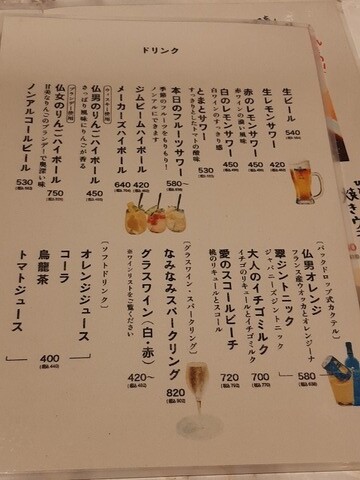 ドリンク
生ビール
540
生レモンサワー
420
赤のレモンサワー
赤ワインの濃い風味
450
白のレモンサワー
白ワインのすっきり感
450
とまとサワー
すっきりとしたトマトの酸味
530
本日のフルーツサワー
季節のフルーツをもりもり!
ノンアルにもできます
580〜
ジムビームハイボール
420
メーカーズハイボール
640
(税込 704)
[ウィスキー使用]
仏男のりんごハイボール
さっぱり風味にりんごが香る
450
[ブランデー使用]
仏女のりんごハイボール
甘美なりんごのブランデーで奥深い味
750
ノンアルコールビール
530
[バックドロップ式カクテル]
仏男オレンジ
フランス産ウオッカとオレンジーナ
580
(税込 638)
翠ジントニック
ジャパニーズジントニック
大人のイチゴミルク
イチゴのリキュールとイチゴミルク
700
(税込 770)
愛のスコールピーチ
桃のリキュールとスコール
720
(税込 792)
[グラスワイン・スパークリング]
なみなみスパークリング
820
(税込 902)
グラスワイン(白・赤)
※ワインリストをご覧ください
420〜
(税込 462)
[ソフトドリンク]
オレンジジュース
コーラ
烏龍茶
トマトジュース
400
(税込 440)